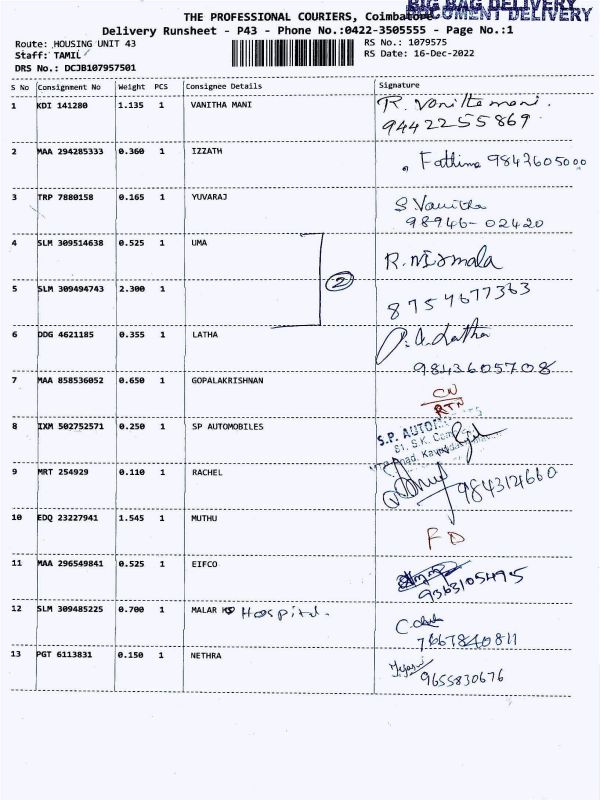 BIG BAG DELIVERY
DOCUMENT DELIVERY
THE PROFESSIONAL COURIERS, Coimbatore
Delivery Runsheet - P43 - Phone No.:0422-3505555 - Page No.:1
Route: HOUSING UNIT 43 RS No.: 1079575
Staff: TAMIL RS Date: 16-Dec-2022
DRS No.: DCJB107957501
S No Consignment No Weight PCS Consignee Details Signature
1 KDI 141280 1.135 1 VANITHA MANI R. Vanitha mani.
9442255869
2 MAA 294285333 0.360 1 IZZATH Fathima 9842605000
3 TRP 7880158 0.165 1 YUVARAJ S. Vanitha
98946-02420
4 SLM 309514638 0.525 1 UMA R. Nirmala
2
5 SLM 309494743 2.300 1 8754677363
6 DDG 4621185 0.355 1 LATHA Latha
9843605708
7 MAA 858536052 0.650 1 GOPALAKRISHNAN CN
RTN
8 IXM 502752571 0.250 1 SP AUTOMOBILES S.P. AUTO
81, S.K.
Road,
9 MRT 254929 0.110 1 RACHEL 9843124660
10 EDQ 23227941 1.545 1 MUTHU FD
11 MAA 296549841 0.525 1 EIFCO 9363105495
12 SLM 309485225 0.700 1 MALAR Hospital.
7667840811
13 PGT 6113831 0.150 1 NETHRA 9655830676